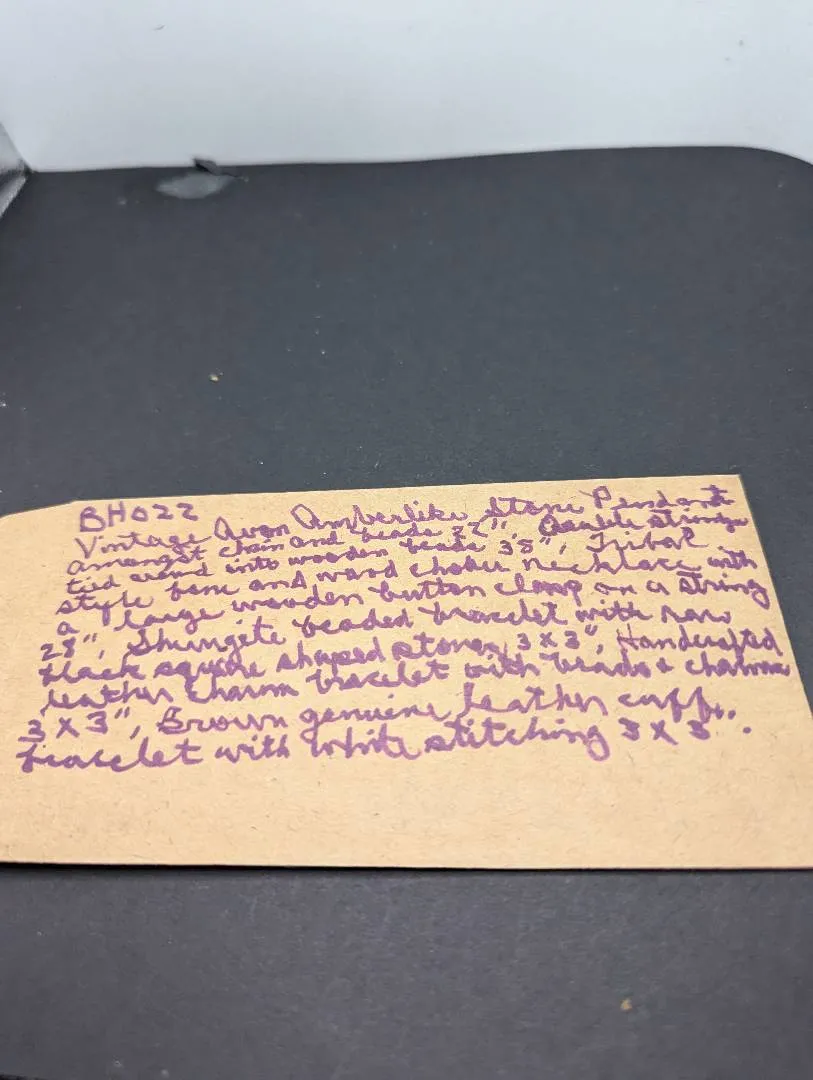 BH022
Vintage Avon Amberlike Stone Pendant
amongst chain and beads 32", Double strings
tid into wooden beads 38", Tribal
style bone and choker necklace with
a large wooden button clasp on a string
28", Shungite beaded bracelet with raw
black square shaped stones 3 x 3", Handcrafted
leather charm bracelet with beads & charms
3 x 3", Brown genuine leather cuff
bracelet with white stitching 3 x 3".